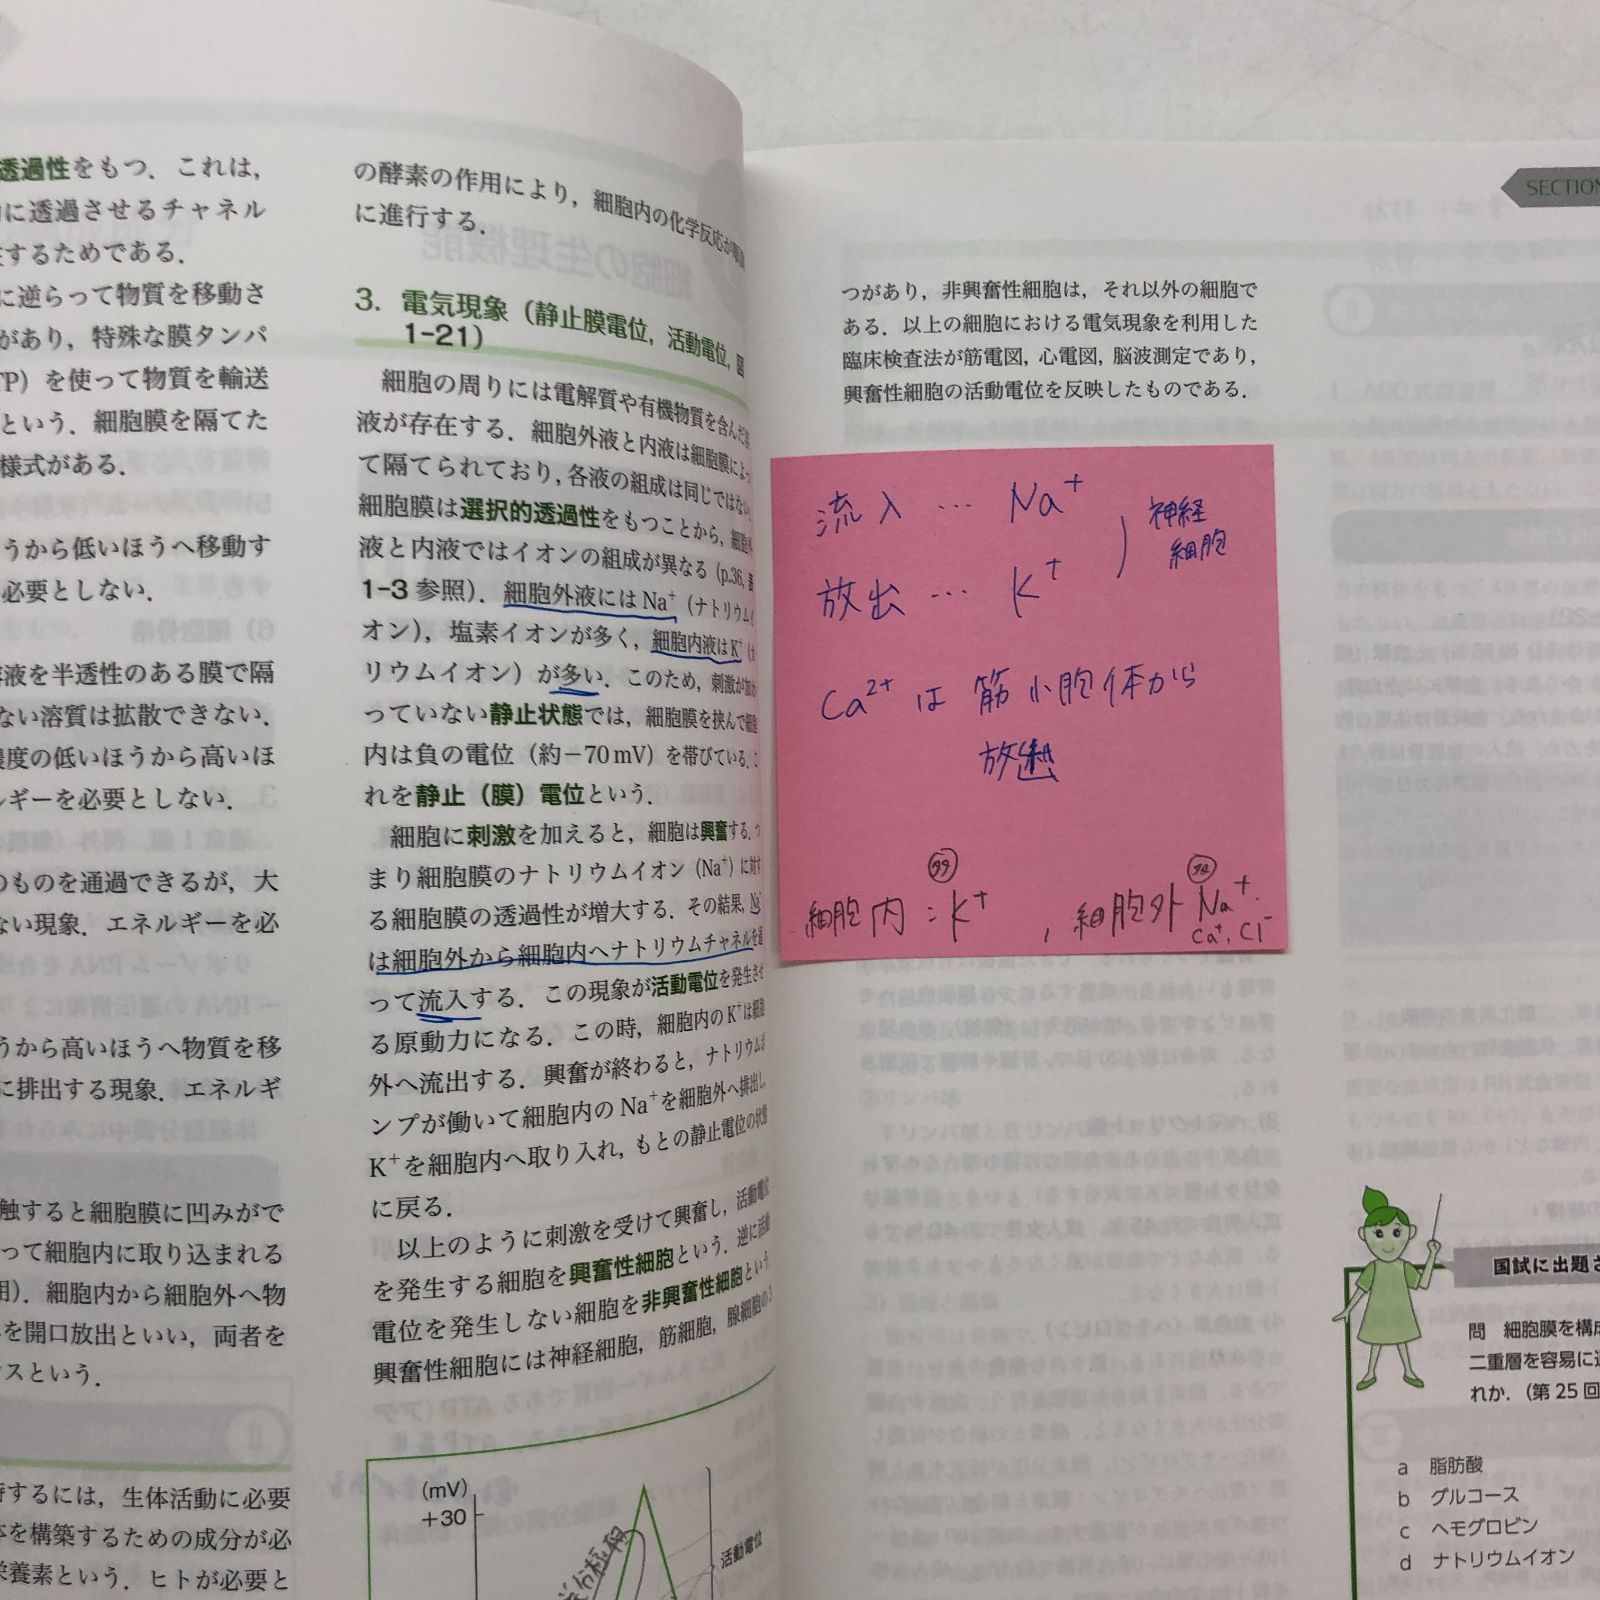 透過性をもつ．これは，
に透過させるチャネル
するためである．
に逆らって物質を移動さ
があり，特殊な膜タンパ
TP）を使って物質を輸送
という．細胞膜を隔てた
様式がある．
うから低いほうへ移動す
必要としない．
溶液を半透性のある膜で隔
ない溶質は拡散できない．
濃度の低いほうから高いほ
ルギーを必要としない．
のものを通過できるが，大
ない現象．エネルギーを必
うから高いほうへ物質を移
に排出する現象．エネルギ
触すると細胞膜に凹みがで
って細胞内に取り込まれる
用）．細胞内から細胞外へ物
を開口放出といい，両者を
スという．
するには，生体活動に必要
を構築するための成分が必
栄養素という．ヒトが必要と
の酵素の作用により，細胞内の化学反応が
に進行する．
3．電気現象（静止膜電位，活動電位，図
1-21）
細胞の周りには電解質や有機物質を含んだ
液が存在する．細胞外液と内液は細胞膜によっ
て隔てられており，各液の組成は同じではない．
細胞膜は選択的透過性をもつことから，細胞外
液と内液ではイオンの組成が異なる（p.36，表
1-3 参照）．細胞外液には Na⁺（ナトリウムイ
オン），塩素イオンが多く，細胞内液は K⁺（カ
リウムイオン）が多い．このため，刺激が加わ
っていない静止状態では，細胞膜を挟んで細胞
内は負の電位（約－70 mV）を帯びている．こ
れを静止（膜）電位という．
細胞に刺激を加えると，細胞は興奮する．つ
まり細胞膜のナトリウムイオン（Na⁺）に対す
る細胞膜の透過性が増大する．その結果，Na⁺
は細胞外から細胞内へナトリウムチャネルを通
って流入する．この現象が活動電位を発生させ
る原動力になる．この時，細胞内の K⁺は細胞
外へ流出する．興奮が終わると，ナトリウムポ
ンプが働いて細胞内の Na⁺を細胞外へ排出し，
K⁺を細胞内へ取り入れ，もとの静止電位の状態
に戻る．
以上のように刺激を受けて興奮し，活動電位
を発生する細胞を興奮性細胞という．逆に活動
電位を発生しない細胞を非興奮性細胞という．
興奮性細胞には神経細胞，筋細胞，腺細胞の3
(mV)
+30
活動電位
SECTION
つがあり，非興奮性細胞は，それ以外の細胞で
ある．以上の細胞における電気現象を利用した
臨床検査法が筋電図，心電図，脳波測定であり，
興奮性細胞の活動電位を反映したものである．
流入 … Na⁺
放出 … K⁺
神経
細胞
Ca²⁺ は 筋小胞体から
放出
細胞内：K⁺，細胞外 Na⁺.
Ca⁺, Cl⁻
国試に出題さ
問　細胞膜を構成
二重層を容易に透
れか．（第 25 回
a　脂肪酸
b　グルコース
c　ヘモグロビン
d　ナトリウムイオン